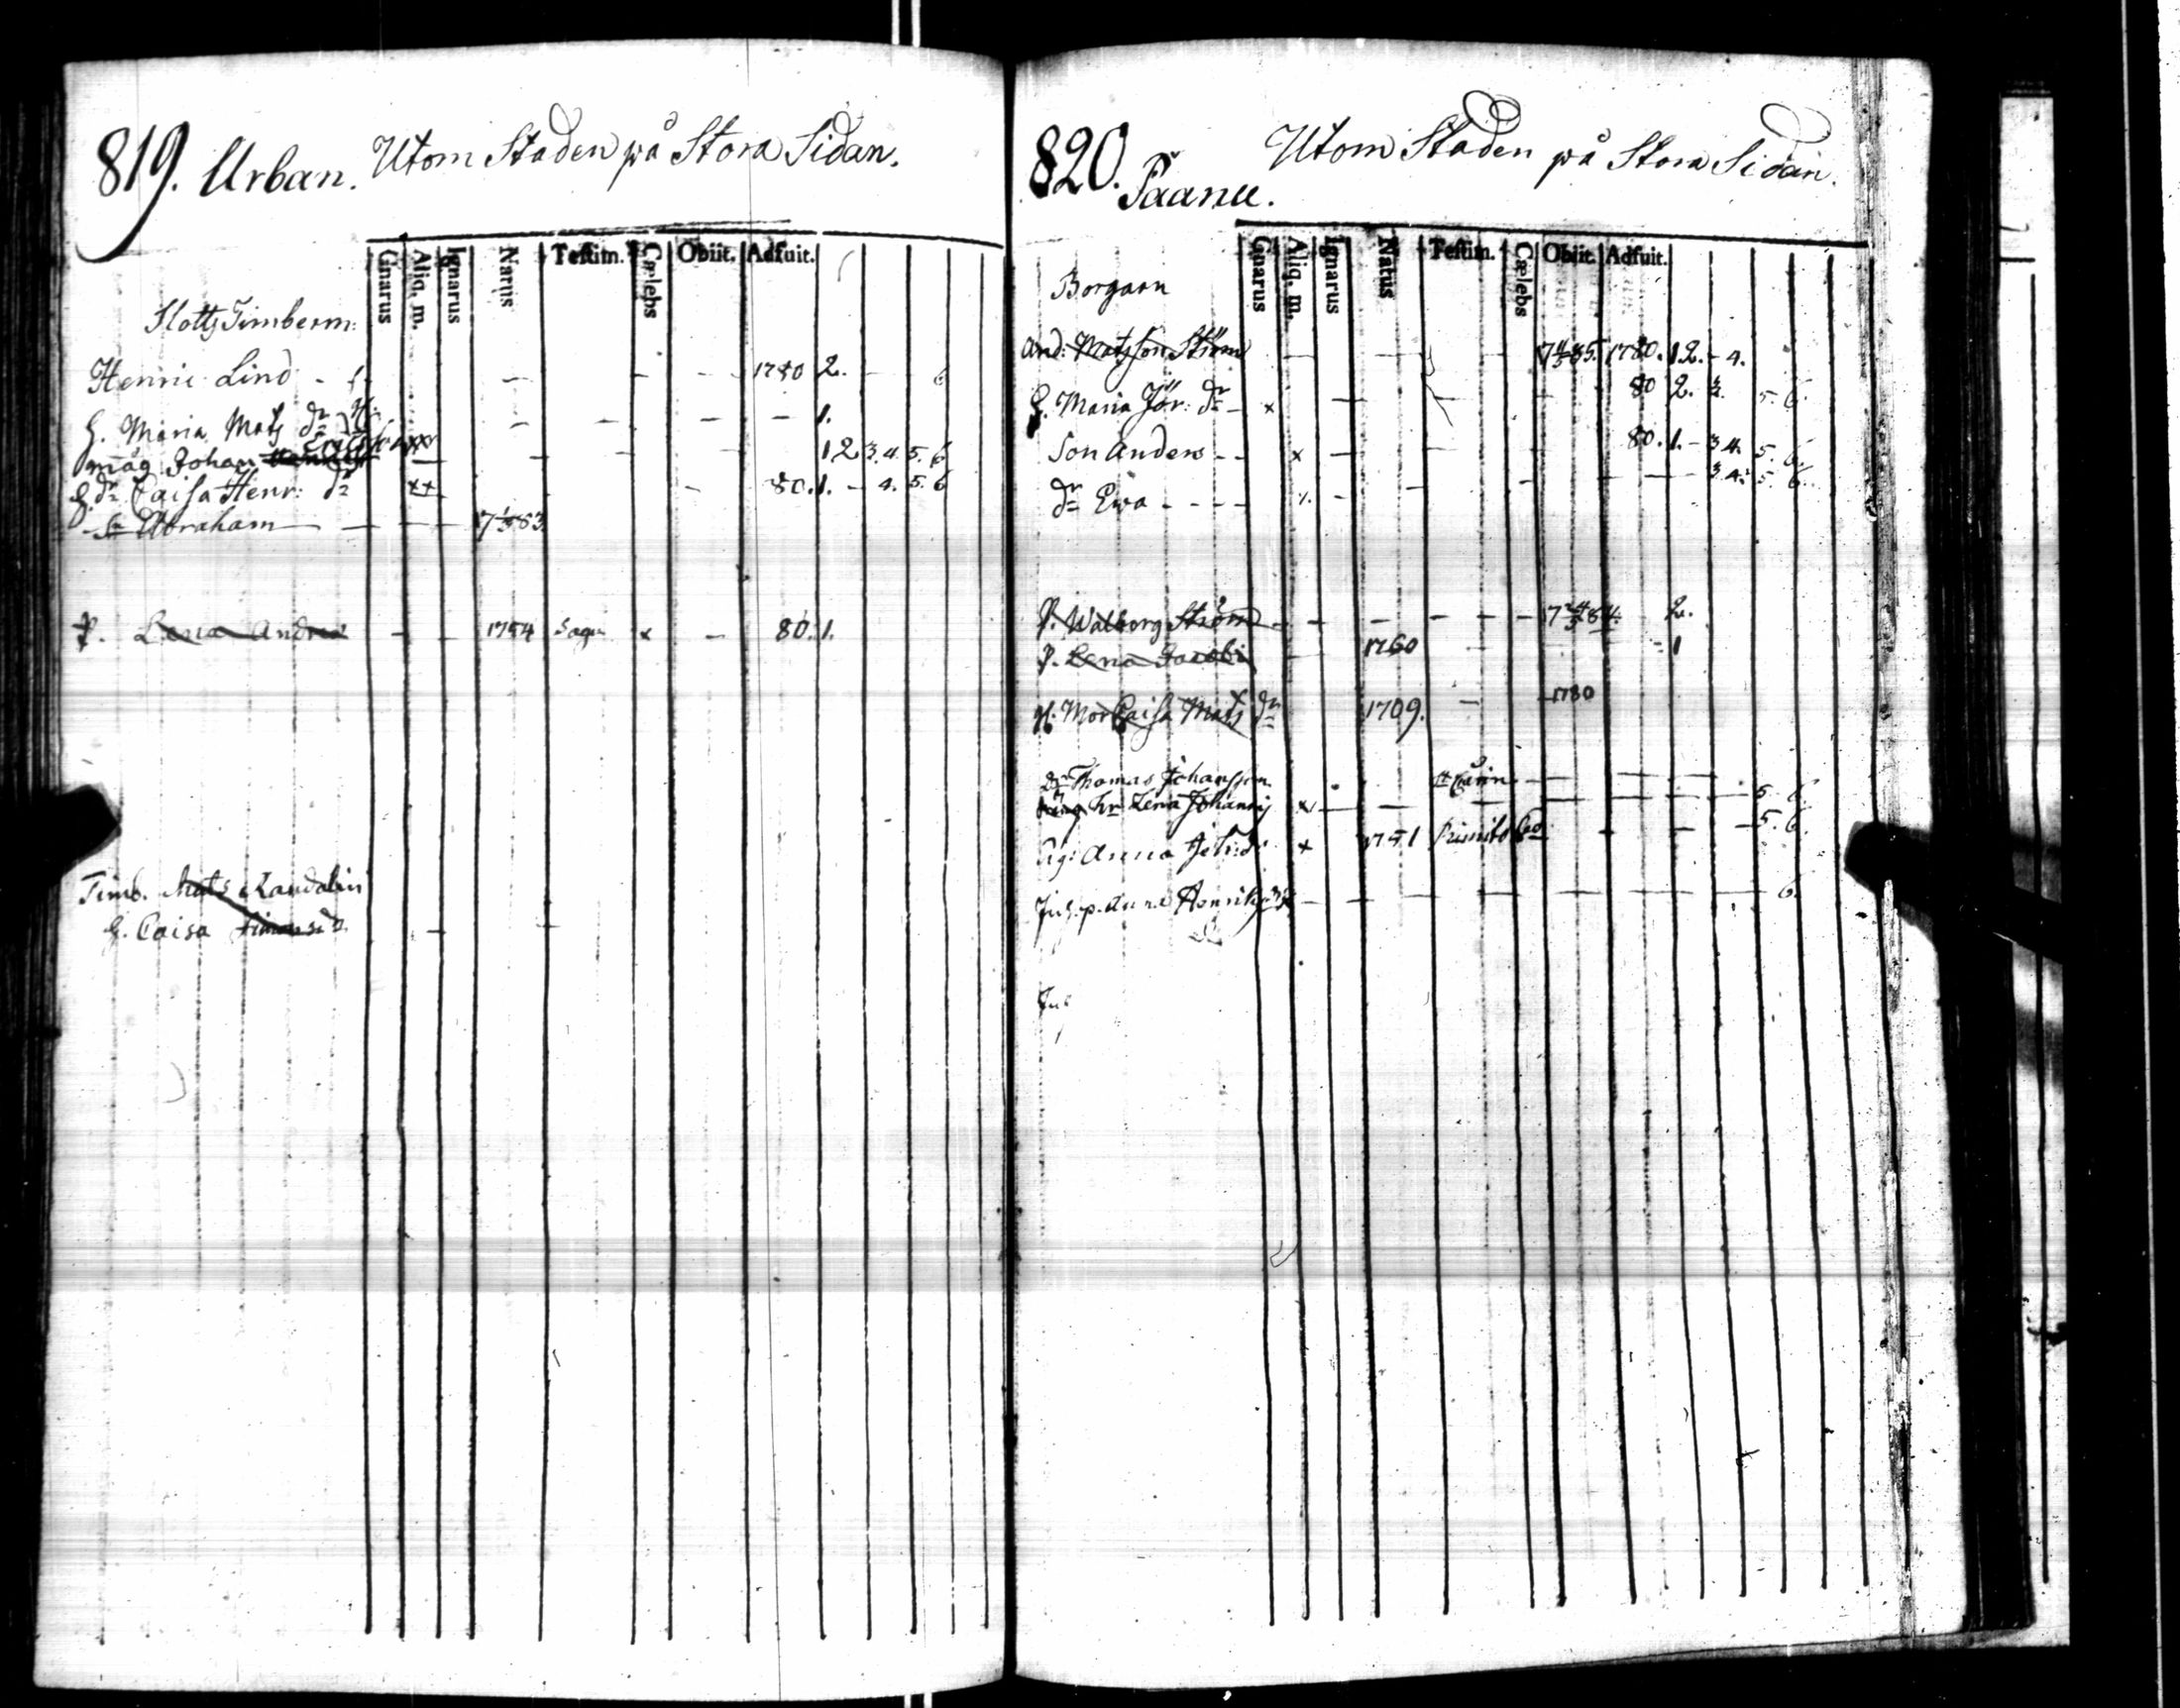 819. Urban. Utom Staden på Stora Sidan.
Gnarus Aliq. m. Ignarus Natus Testim. Cælebs Obiit. Adfuit.
Slottz Timberm:
Henric Lind - - - - - 1780 2. - 6
H. Maria Matz dr - - - - 1.
måg Johan Ericsson xx - - - 1 2 3. 4. 5. 6
H. dr Caisa Henr: dr xx - 80. 1. - 4. 5. 6
Sn Abraham - - - 7 1/3 83
P. Lena Andrea - - 1754 Sagu x - 80. 1.
Timb. Mats Randalin
H. Caisa Simonsd. - -
820. Päanu. Utom Staden på Stora Sidan.
Gnarus Aliq. m. Ignarus Natus Testim. Cælebs Obiit. Adfuit.
Borgarn
And: Matzson Ström - - - 7 4/3 85. 1780. 1. 2. - 4.
H. Maria Jör: dr - x - - - 80 2. 5. 6.
Son Anders - - x - - - 80. 1. - 3 4. 5. 6.
dr Ewa - - - - - - - - - 3 4. 5 6.
P. Walborg Ström - - - - - - 84. 2.
P. Lena Jacobi - 1760 - - 1
H. Mor Caisa Matz dr 1709. - 1780
Thomas Johansson St Carin - - - -
hr Lena Johannis x - - - - - - 5. 6.
Anna x 1751 - - - 5. 6.
Henrik - - - - - - - 6.